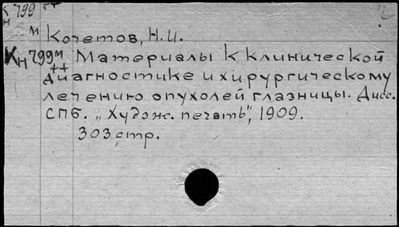 799 ++
н
м Кочетов, Н.И.
Кн 799м Материалы к клинической
++
диагностике и хирургическому
лечению опухолей глазницы. Дисс.
СПб. „Худож. печать", 1909.
303 стр.